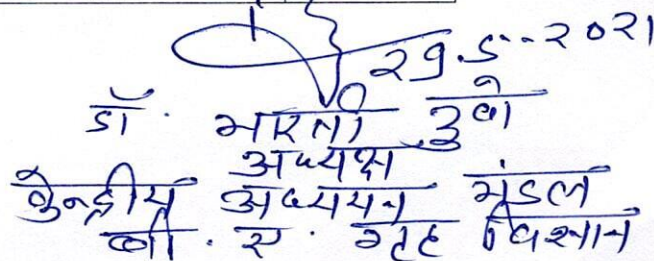 29.5--2021
डॉ. भारती दुबे
अध्यक्ष
केन्द्रीय अध्ययन मंडल
बी. ए. गृह विज्ञान